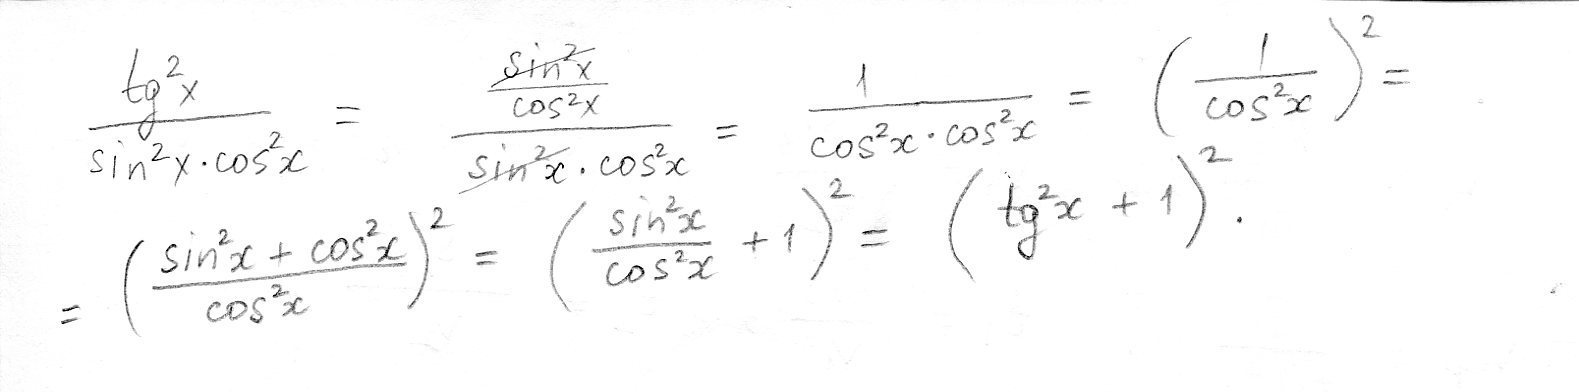 tg²x / (sin²x · cos²x) = (sin²x / cos²x) / (sin²x · cos²x) = 1 / (cos²x · cos²x) = (1 / cos²x)² =
= ((sin²x + cos²x) / cos²x)² = (sin²x / cos²x + 1)² = (tg²x + 1)².